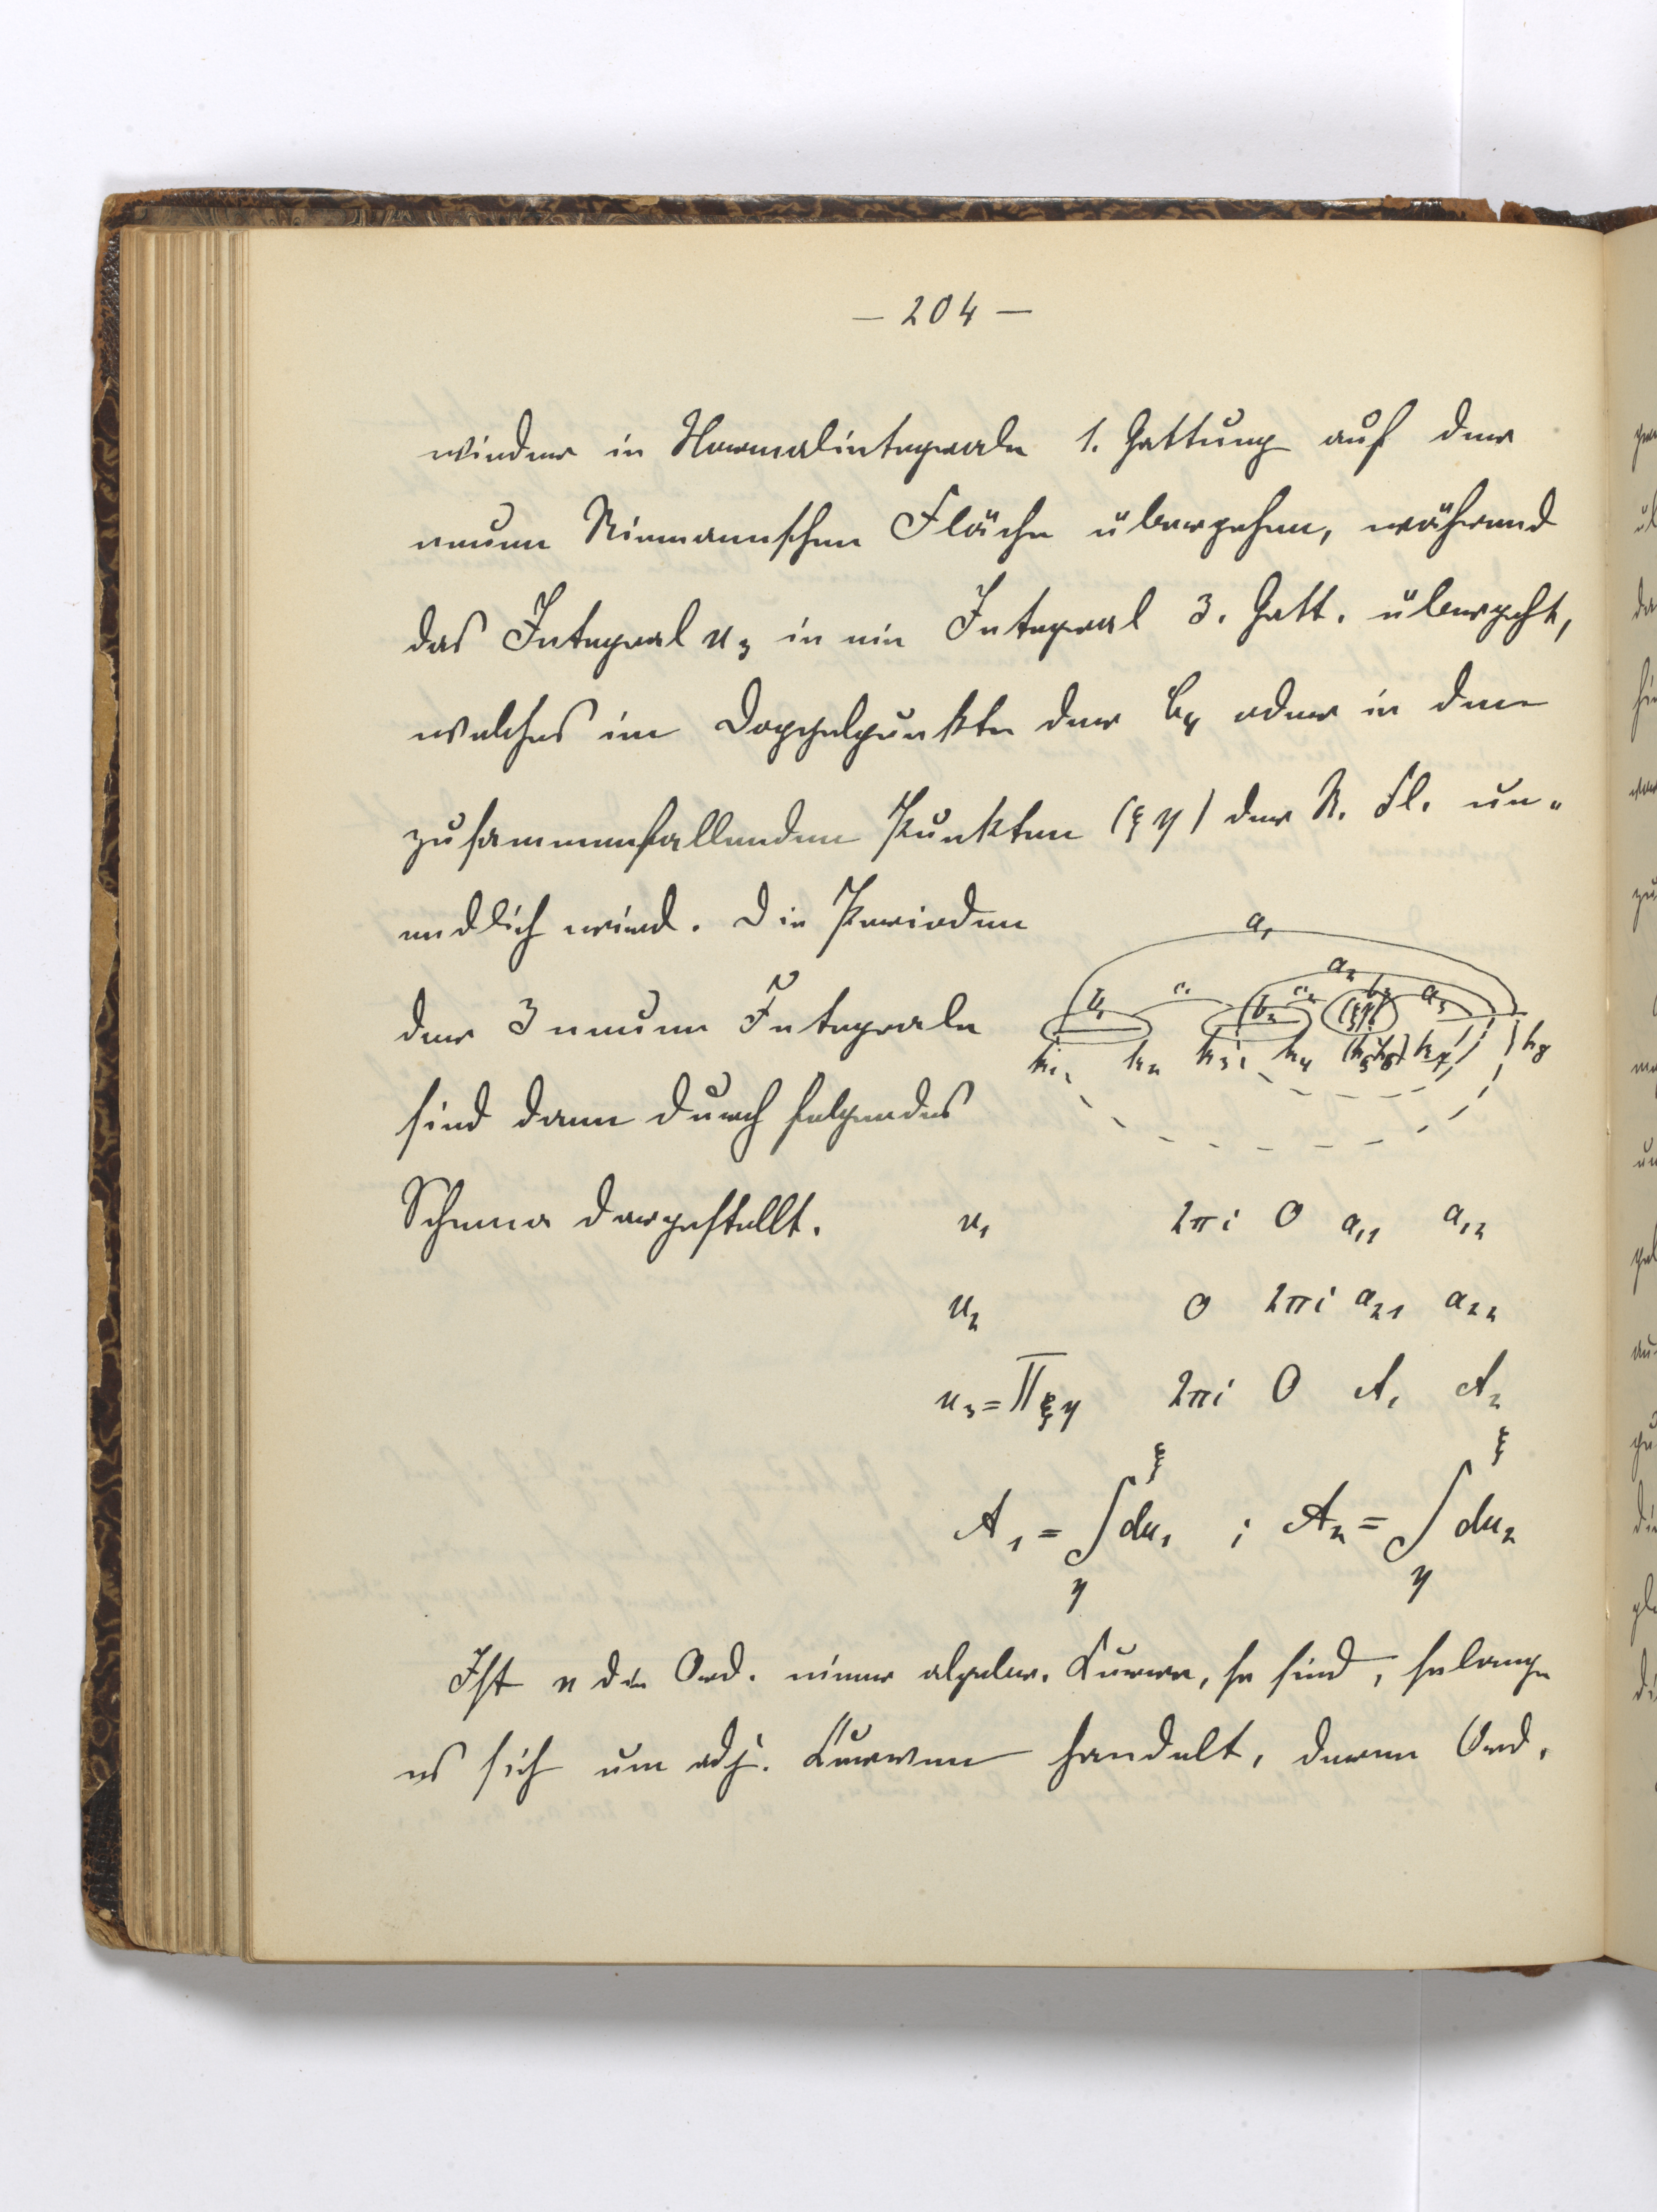 — 204 —
wieder in Normalintegrale 1. Gattung auf der
neuen Riemannschen Fläche übergehen, während
das Integral u₃ in ein Integral 3. Gatt. übergeht,
welches im Doppelpunkte der C₄ oder in den
zusammenfallenden Punkten (ξ η) der R. Fl. un-
endlich wird. Die Perioden
der 3 neuen Integrale
sind dann durch folgendes
Schema dargestellt.
a₁
a₂
b₁ c₁ b₂ c₂ (ξη) b₃ a₃
k₁ k₂ k₃ k₄ (k₅k₆) k₇ k₈
u₁ 2πi 0 a₁₁ a₁₂
u₂ 0 2πi a₂₁ a₂₂
u₃ = Π ξη 2πi 0 A₁ A₂
A₁ = ∫_η^ξ du₁ ; A₂ = ∫_η^ξ du₂
Ist n die Ord. einer algebr. Kurve, so sind, solange
es sich um adj. Kurven handelt, deren Ord.